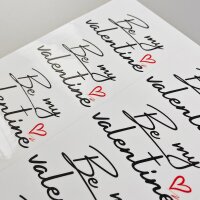 Be my
valentine
Be my
valentine
Be my
valentine
Be my
valentine
Be my
valentine
Be my